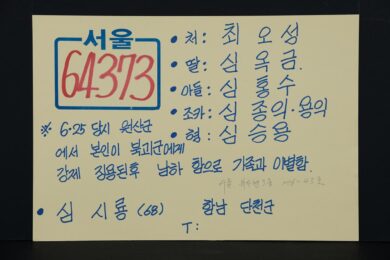 서울
64373
• 처: 최 오 성
• 딸: 심 옥 금.
• 아들: 심 홍 수
• 조카: 심 종의·용의
• 형: 심 승용
※ 6·25 당시 원산군
에서 본인이 북괴군에게
강제 징용된후 남하 함으로 가족과 이별함.
• 심 시 룡 (68) 함남 단천군
T: